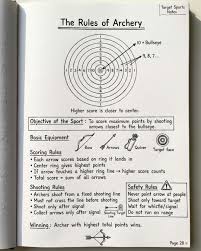 Target Sports
Notes
The Rules of Archery
10 = Bullseye
9, 8, 7...
Higher score is closer to center.
Objective of the Sport: To score maximum points by shooting
arrows closest to the bullseye.
Basic Equipment
Bow
Arrow
Quiver
Target face
Scoring Rules
• Each arrow scores based on ring it lands in
• Center ring gives highest points
• If arrow touches a higher ring line → higher score counts
• Total score = sum of all arrows
Shooting Rules
• Archers shoot from a fixed shooting line
• Must not cross line before signal
• Shoot only after signal
• Collect arrows only after signal
Shooting Target
Safety Rules
Never aim at people
Shoot only toward target
Wait for whistle/signal
Do not run on range
Winning: Archer with highest total points wins.
Page 28